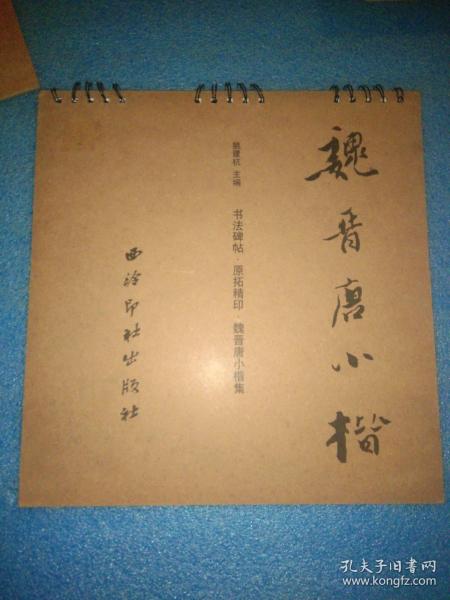 魏晋唐小楷
主编
书法碑帖·原拓精印·魏晋唐小楷集
西泠印社出版社
孔夫子旧书网
www.kongfz.com